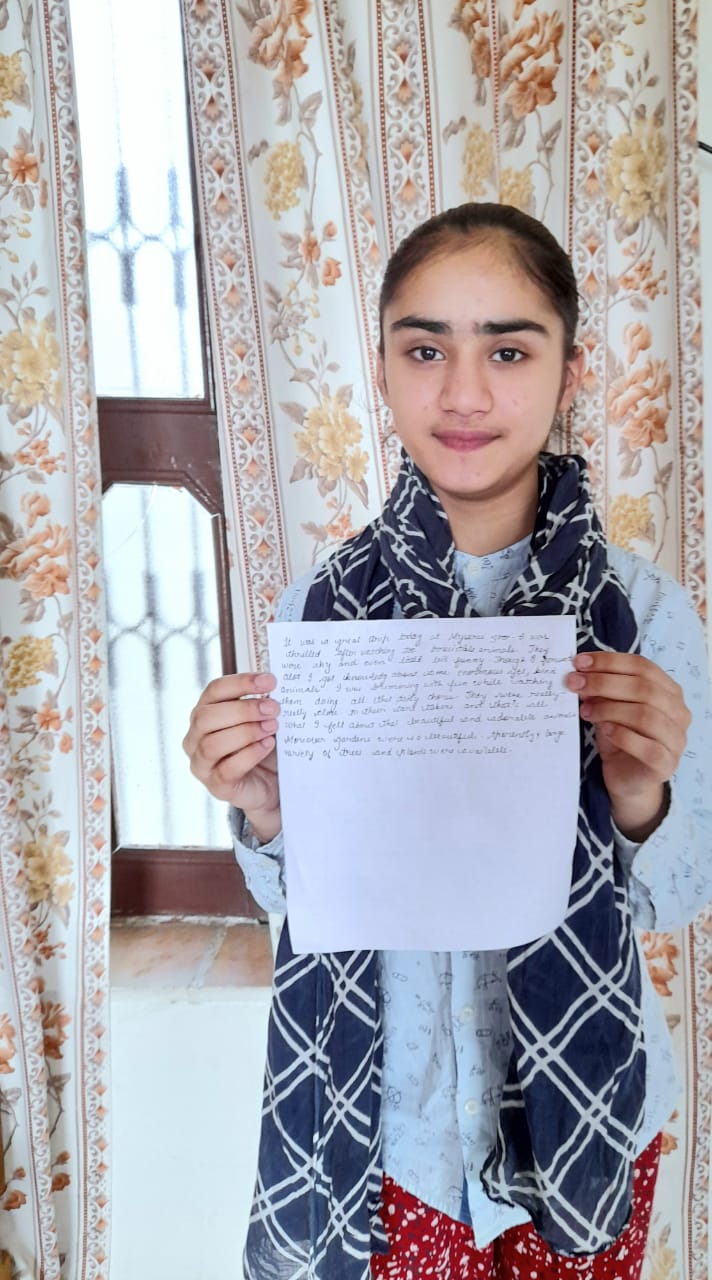 It was a great trip today at Mysore zoo. I was
thrilled after watching the irresistible animals. They
were shy and even bit funny. Though I
Also I got knowledge about some enormous
animals. I was brimming with fun while watching
them doing all the silly chores. They were really
really close to them and that's all
What I felt about that beautiful and adorable animals
Moreover gardens were so beautiful. Apparently a large
variety of trees and plants were available.